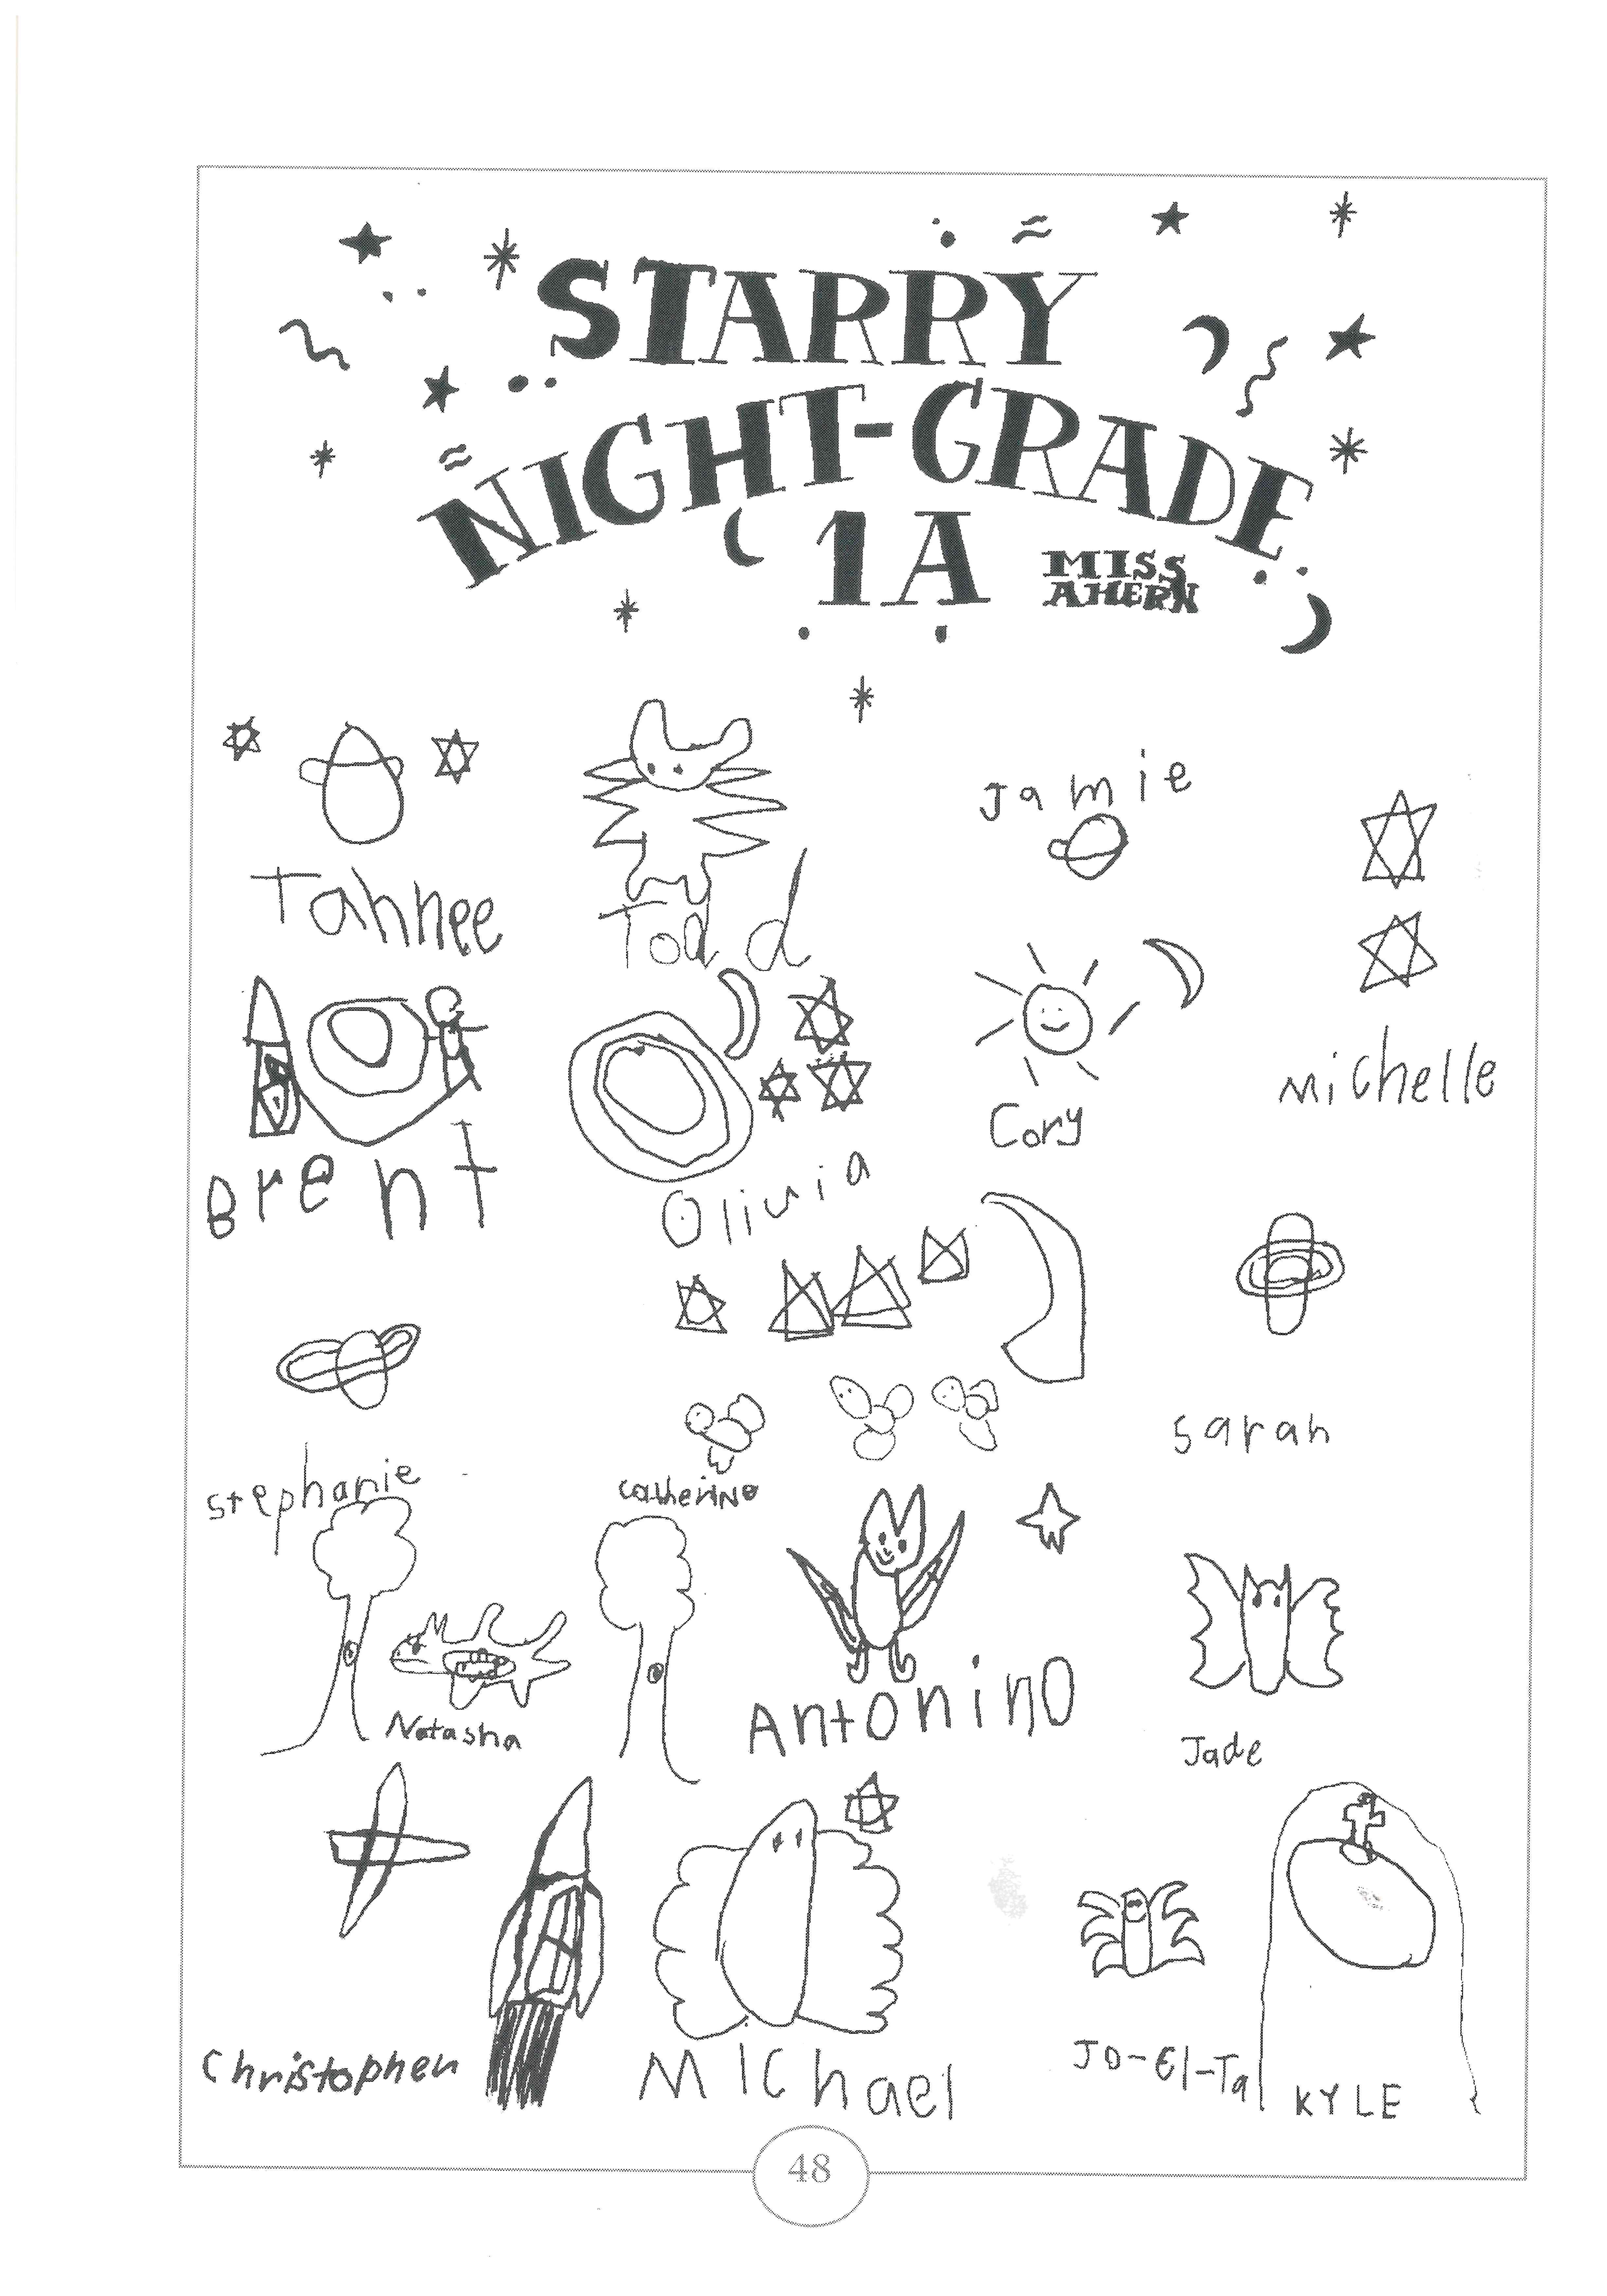 STARRY
NIGHT-GRADE
1A
MISS
AHERN
Tahnee
Todd
Jamie
Michelle
Brent
Olivia
Cory
Stephanie
Catherine
Sarah
Natasha
Antonino
Jade
Christopher
Michael
Jo-El-Ta
KYLE
48